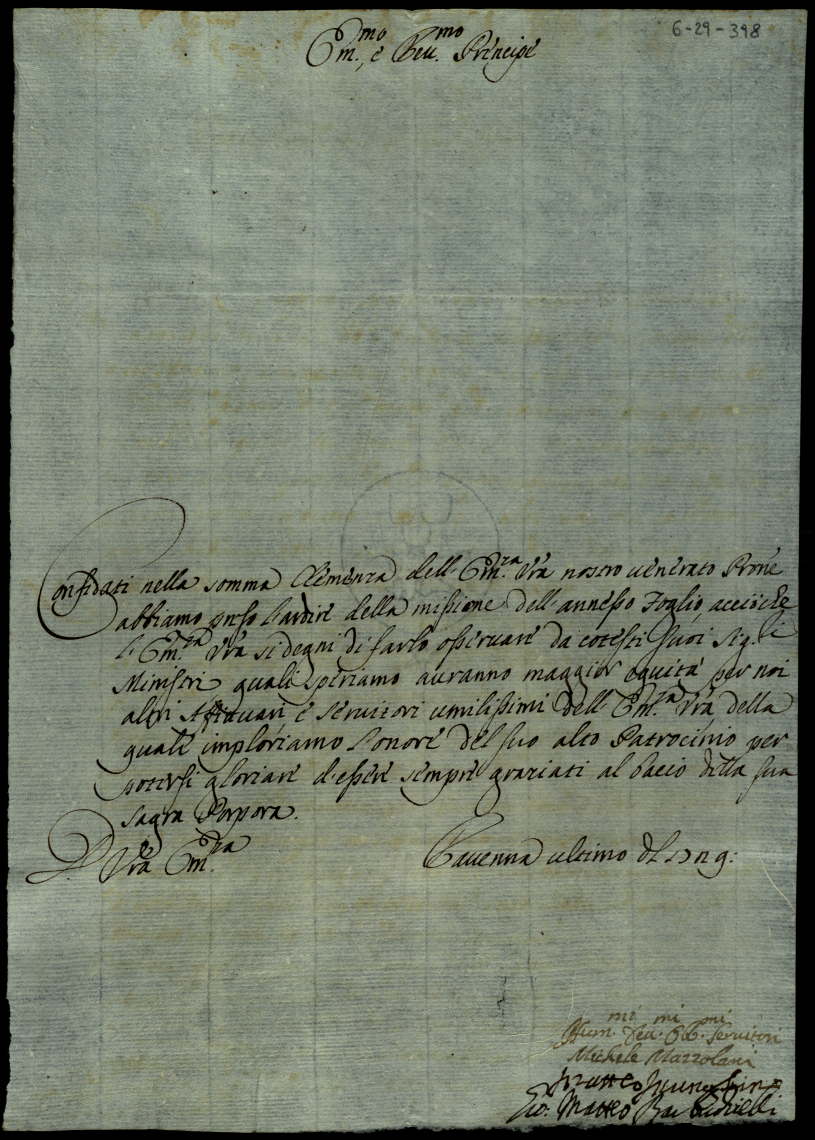 6-29-398
Em.mo e Reu.mo Principe
Confidati nella somma Clemenza dell'Em.za Vrã nostro uenerato Prõne
abbiamo preso l'ardire della missione dell'annesso Foglio, acciòche
l'Em.za Vrã si degni di farlo osseruare da cotesti suoi Sig.ri
Ministri quali speriamo auranno maggior equità per noi
altri Affittuari e Seruitori umilissimi dell'Em.za Vrã della
quale imploriamo l'onore del suo alto Patrocinio per
potersi gloriare d'essere sempre graziati al bacio della sua
sagra Porpora.
D. Vrã Em.za
Rauenna ultimo del 1729:
Hum.mi Deu.mi Ob.mi Seruitori
Michele Mazzolani
Gio: Matteo